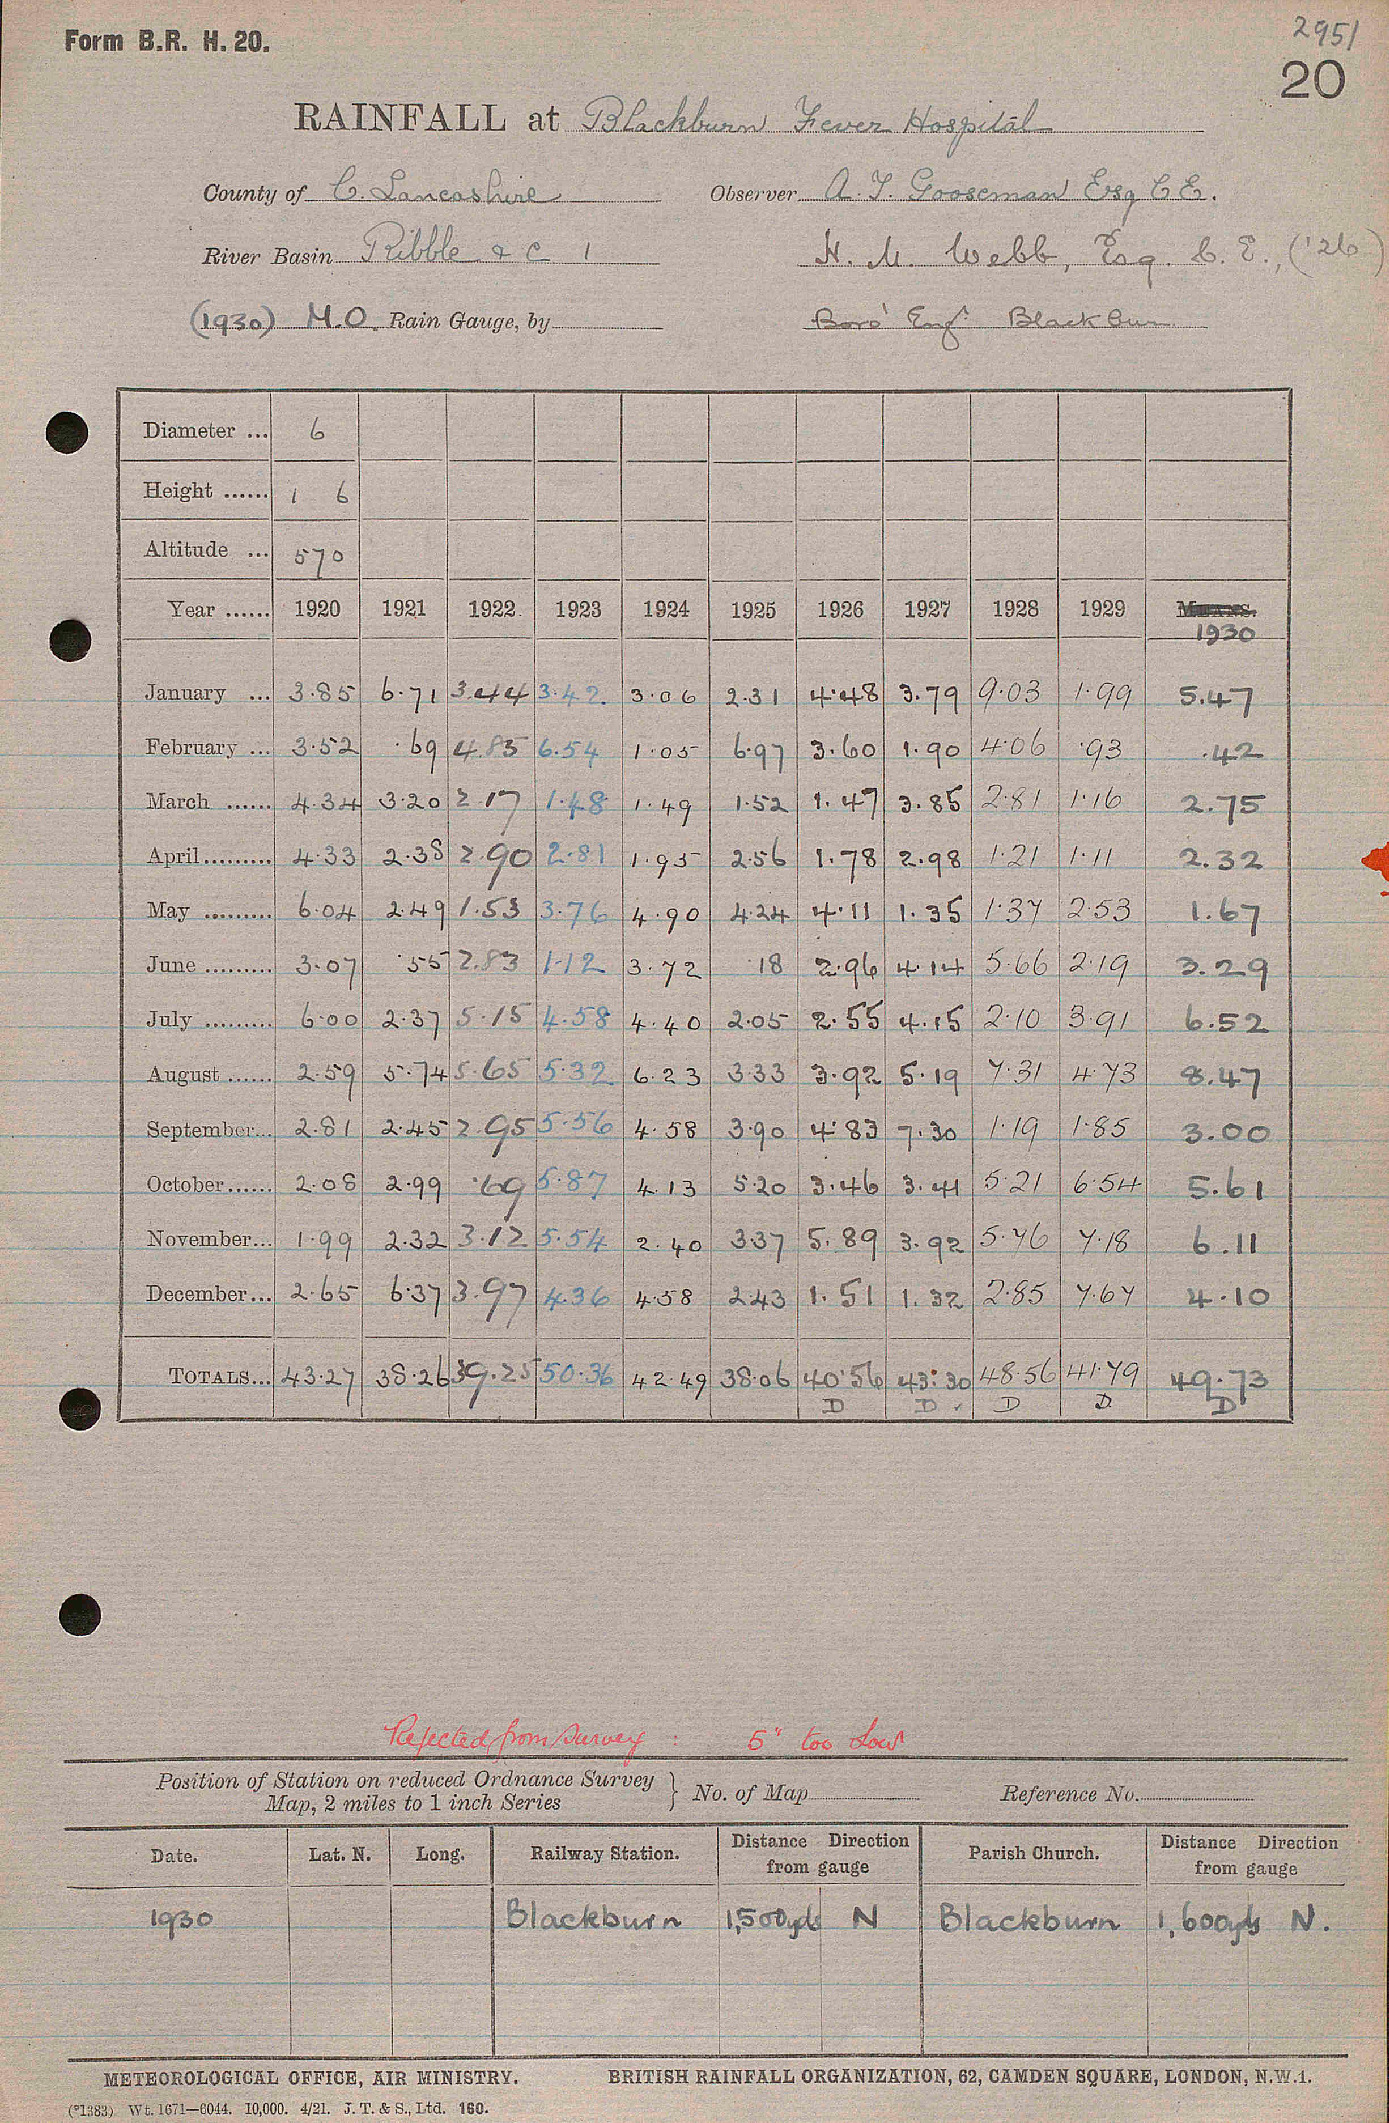 2951
Form B.R. H. 20.
20
RAINFALL at Blackburn Fever Hospital
County of C. Lancashire Observer A. T. Gooseman Esq C E.
River Basin Ribble & C 1 H. M. Webb, Esq. C. E., ('26)
(1930) M.O. Rain Gauge, by Boro' Engr Blackburn
Diameter ... 6
Height ...... 1 6
Altitude ... 570
Year ...... 1920 1921 1922 1923 1924 1925 1926 1927 1928 1929 MEANS. 1930
January ... 3.85 6.71 3.44 3.42 3.06 2.31 4.48 3.79 9.03 1.99 5.47
February ... 3.52 .69 4.85 6.54 1.05 6.97 3.60 1.90 4.06 .93 .42
March ...... 4.34 3.20 2.17 1.48 1.49 1.52 1.47 3.85 2.81 1.16 2.75
April......... 4.33 2.38 2.90 2.81 1.95 2.56 1.78 2.98 1.21 1.11 2.32
May ......... 6.04 2.49 1.53 3.76 4.90 4.24 4.11 1.35 1.37 2.53 1.67
June ......... 3.07 .55 2.83 1.12 3.72 .18 2.96 4.14 5.66 2.19 3.29
July ......... 6.00 2.37 5.15 4.58 4.40 2.05 2.55 4.15 2.10 3.91 6.52
August ...... 2.59 5.74 5.65 5.32 6.23 3.33 3.92 5.19 7.31 4.73 8.47
September... 2.81 2.45 2.95 5.56 4.58 3.90 4.83 7.30 1.19 1.85 3.00
October...... 2.08 2.99 .69 5.87 4.13 5.20 3.46 3.41 5.21 6.54 5.61
November... 1.99 2.32 3.12 5.54 2.40 3.37 5.89 3.92 5.76 7.18 6.11
December... 2.65 6.37 3.97 4.36 4.58 2.43 1.51 1.32 2.85 7.67 4.10
TOTALS... 43.27 38.26 39.25 50.36 42.49 38.06 40.56 43.30 48.56 41.79 49.73
D D . D D D
Rejected from survey : 5" too low
Position of Station on reduced Ordnance Survey
Map, 2 miles to 1 inch Series } No. of Map Reference No.
Date. Lat. N. Long. Railway Station. Distance Direction from gauge Parish Church. Distance Direction from gauge
1930 Blackburn 1,500yds N Blackburn 1,600yds N.
METEOROLOGICAL OFFICE, AIR MINISTRY. BRITISH RAINFALL ORGANIZATION, 62, CAMDEN SQUARE, LONDON, N.W.1.
(*1383) Wt. 1671—6044. 10,000. 4/21. J. T. & S., Ltd. 160.